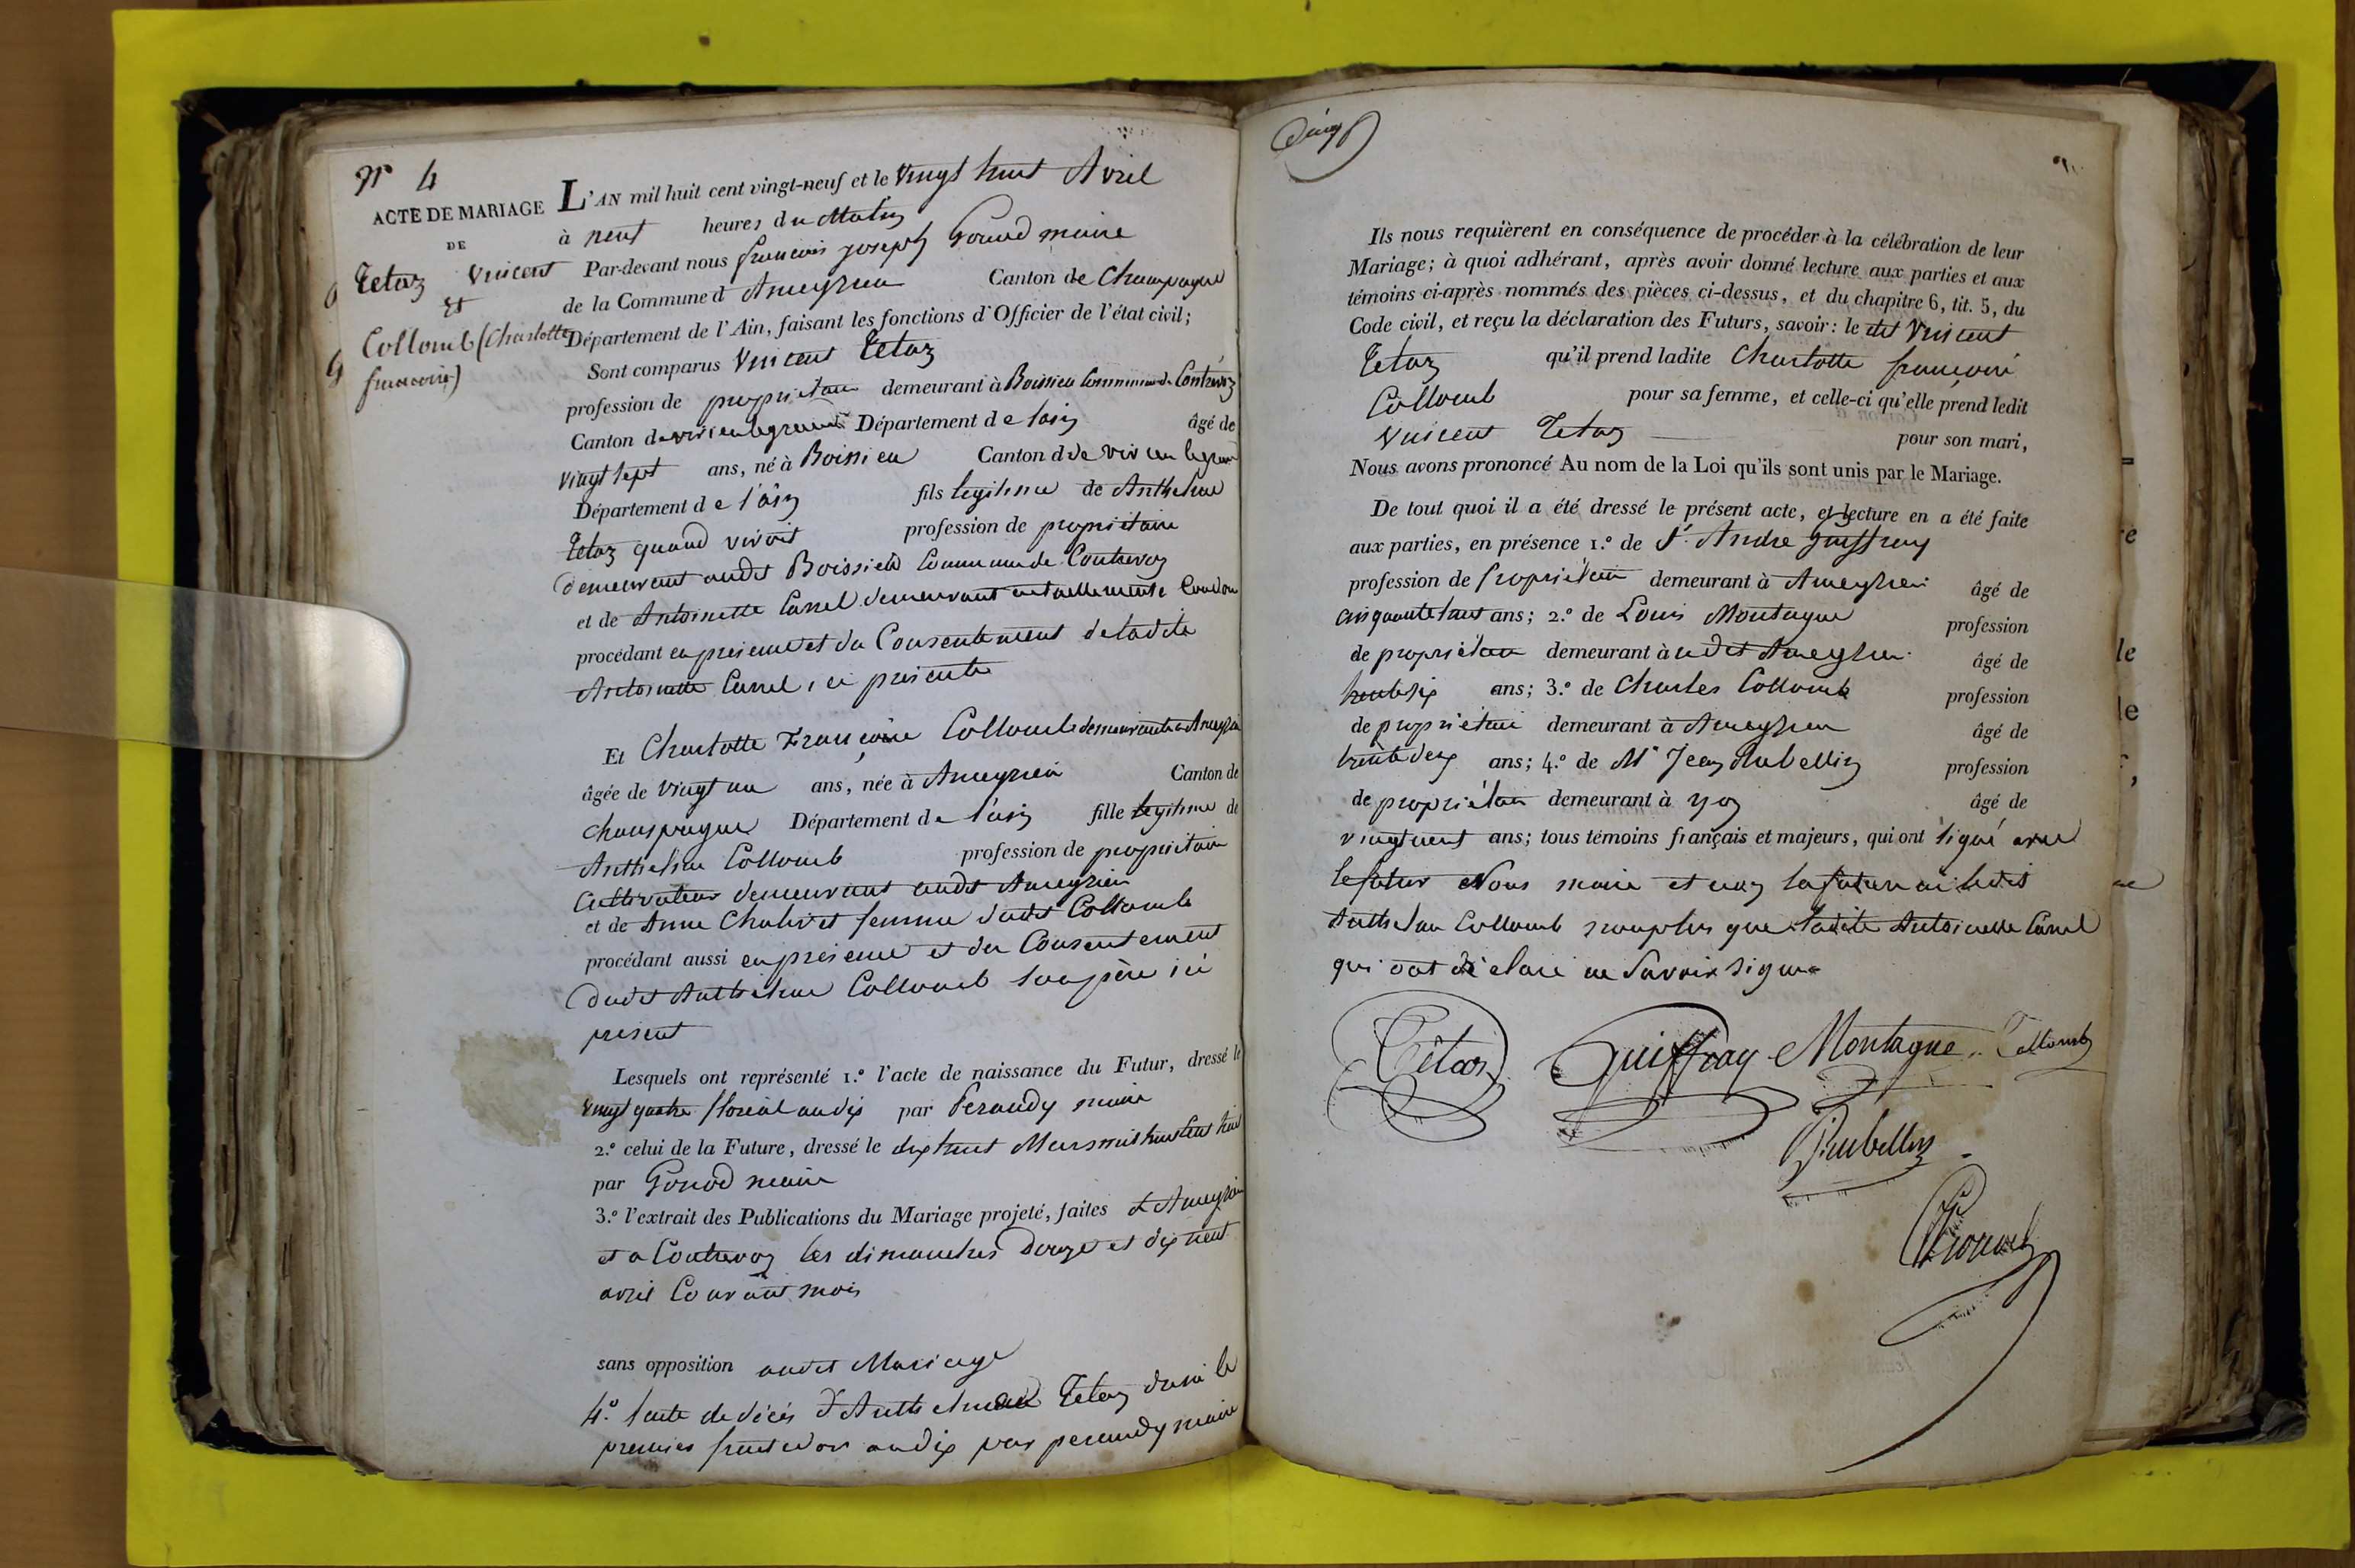 N° 4
ACTE DE MARIAGE
DE
Tetaz Vincent
Et
Collomb (Charlotte
francoise)
L'AN mil huit cent vingt-neuf et le vingt huit Avril
à neuf heures du Matin
Par-devant nous françois joseph Gonod maire
de la Commune d'Ameyzieu Canton de Champagne
Département de l'Ain, faisant les fonctions d'Officier de l'état civil;
Sont comparus Vincent Tetaz
profession de propriétaire demeurant à Boissieu Commune de Contrevoz
Canton de virieu le grand Département de lain âgé de
vingt sept ans, né à Boissieu Canton de virieu le grand
Département de l'ain fils légitime de Anthelme
Tetaz quand vivoit profession de propriétaire
demeurant audit Boissieu Commune de Contrevoz
et de Antoinette Carrel demeurant actuellement à
procédant en présence et du Consentement de ladite
Antoinette Carrel, ici présente
Et Charlotte Françoise Collomb demeurante a Ameyzieu
âgée de vingt un ans, née à Ameyzieu Canton de
champagne Département de l'ain fille légitime de
Anthelme Collomb profession de propriétaire
Cultivateur demeurant audit Ameyzieu
et de Anne Chalivet femme dudit Collomb
procédant aussi en présence et du Consentement
dudit Anthelme Collomb son père ici
présent
Lesquels ont représenté 1.° l'acte de naissance du Futur, dressé le
vingt quatre floréal an dix par Perandy maire
2.° celui de la Future, dressé le dix huit Mars mil huit cent huit
par Gonod maire
3.° l'extrait des Publications du Mariage projeté, faites à Ameyzieu
et a Contrevoz les dimanches Douze et dix neuf
avril Courant mois
sans opposition audit Mariage
4.° l'acte de décès d'Anthelme Tetaz dressé le
premier fructidor an dix par perandy maire
Ils nous requièrent en conséquence de procéder à la célébration de leur
Mariage; à quoi adhérant, après avoir donné lecture aux parties et aux
témoins ci-après nommés des pièces ci-dessus, et du chapitre 6, tit. 5, du
Code civil, et reçu la déclaration des Futurs, savoir: le dit Vincent
Tetaz qu'il prend ladite Charlotte françoise
Collomb pour sa femme, et celle-ci qu'elle prend ledit
Vincent Tetaz pour son mari,
Nous avons prononcé Au nom de la Loi qu'ils sont unis par le Mariage.
De tout quoi il a été dressé le présent acte, et lecture en a été faite
aux parties, en présence 1.° de Sr. Andre Guiffray
profession de propriétaire demeurant à Ameyzieu âgé de
cinquante huit ans; 2.° de Louis Montagne profession
de propriétaire demeurant à udit Ameyzieu âgé de
trente six ans; 3.° de Charles Collomb profession
de propriétaire demeurant à Ameyzieu âgé de
trente deux ans; 4.° de Mr Jean Rubellin profession
de propriétaire demeurant à yon âgé de
vingt neuf ans; tous témoins français et majeurs, qui ont signé avec
le futur Nous maire et non la future ni ledit
Anthelme Collomb non plus que ladite Antoinette Carrel
qui ont déclaré ne Savoir Signer
Têtaz Guiffray Montagne Collomb
Rubellin
Gonod